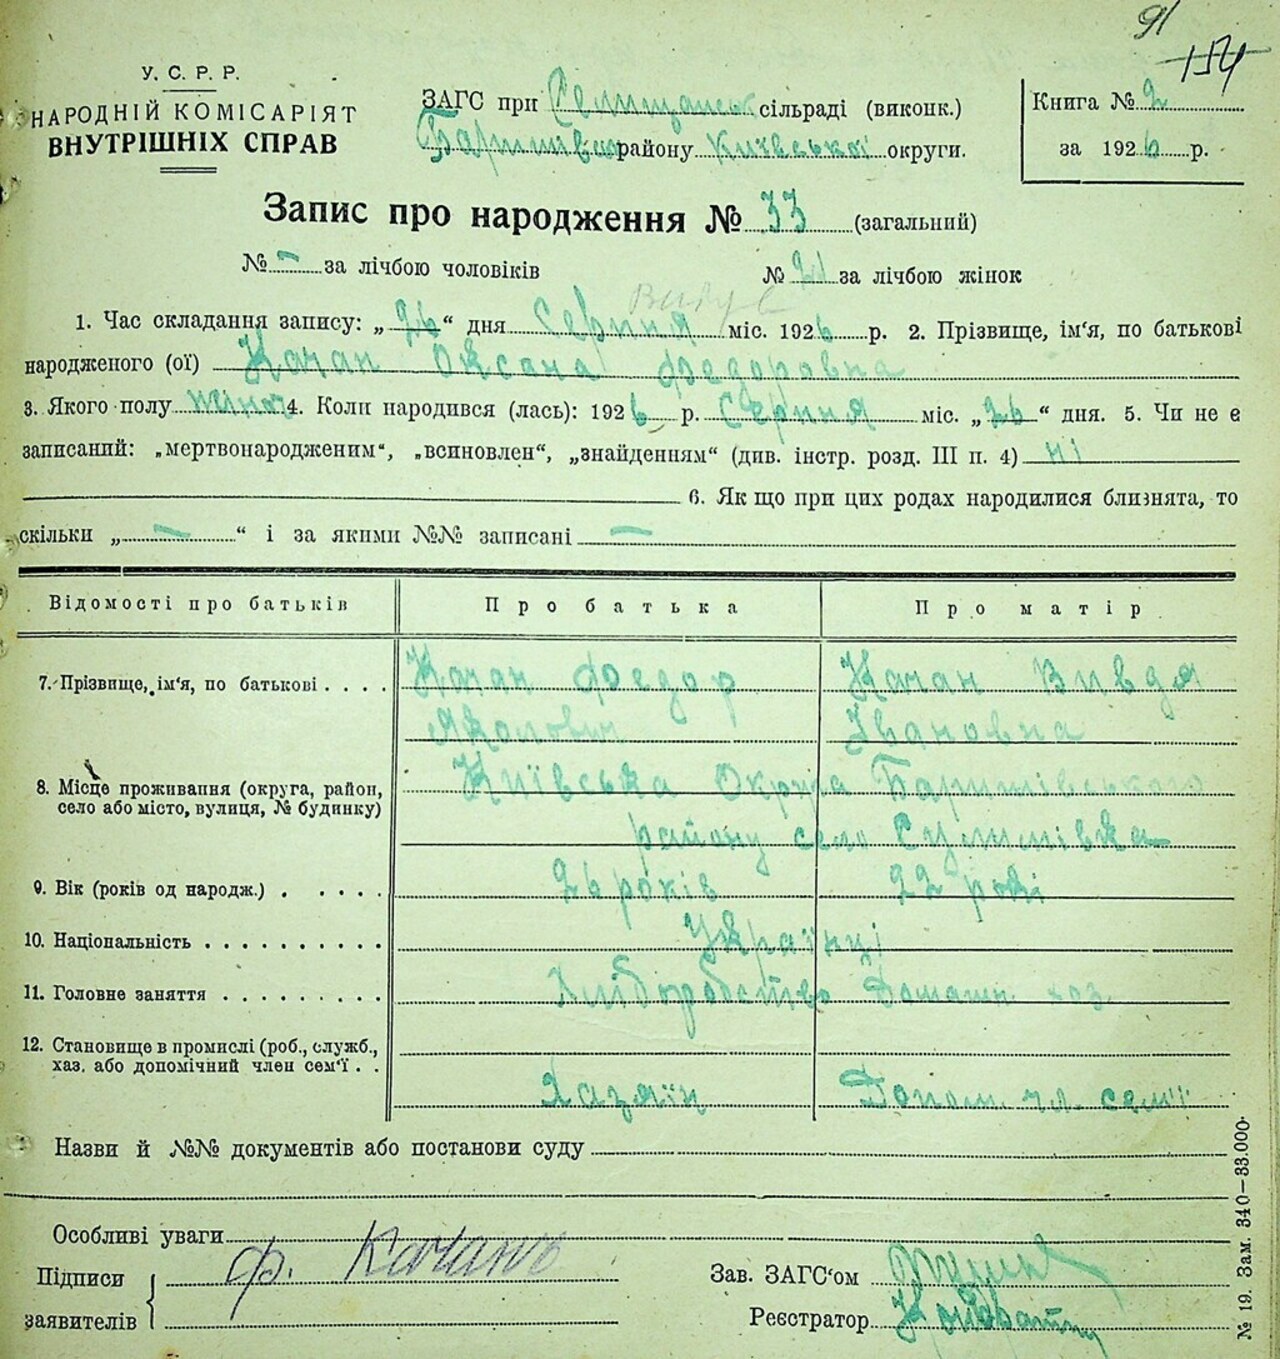 91
154
У. С. Р. Р.
НАРОДНІЙ КОМІСАРІЯТ
ВНУТРІШНІХ СПРАВ
ЗАГС при Селищанськ сільраді (виконк.)
Баришівськ району Київської округи.
Книга № 2
за 1926 р.
Запис про народження № 33 (загальний)
№ – за лічбою чоловіків
№ 21 за лічбою жінок
1. Час складання запису: „26“ дня Серпня міс. 1926 р. 2. Прізвище, ім'я, по батькові
народженого (ої) Качан Оксана Федоровна
3. Якого полу жіноч 4. Коли народився (лась): 1926 р. Серпня міс. „26“ дня. 5. Чи не є
записаний: „мертвонародженим“, „всиновлен“, „знайденням“ (див. інстр. розд. III п. 4) ні
6. Як що при цих родах народилися близнята, то
скільки „ – “ і за якими №№ записані –
Відомості про батьків Про батька Про матір
7. Прізвище, ім'я, по батькові . . . . Качан Федор Качан Вивдя
Івановна
8. Місце проживання (округа, район, Київська Окрга Баришівського
село або місто, вулиця, № будинку) району село
9. Вік (років од народж.) . . . . . 26 років 22 рокі
10. Національність . . . . . . . . . . Українці
11. Головне заняття . . . . . . . . . Хлібопробство Домашн хоз.
12. Становище в промислі (роб., служб.,
хаз. або допомічний член сем'ї . . Хазяїн Допом. чл. семї
Назви й №№ документів або постанови суду
Особливі уваги
Підписи ф. Качанъ
заявителів
Зав. ЗАГС'ом
Реєстратор
№ 19. Зам. 340–33.000.